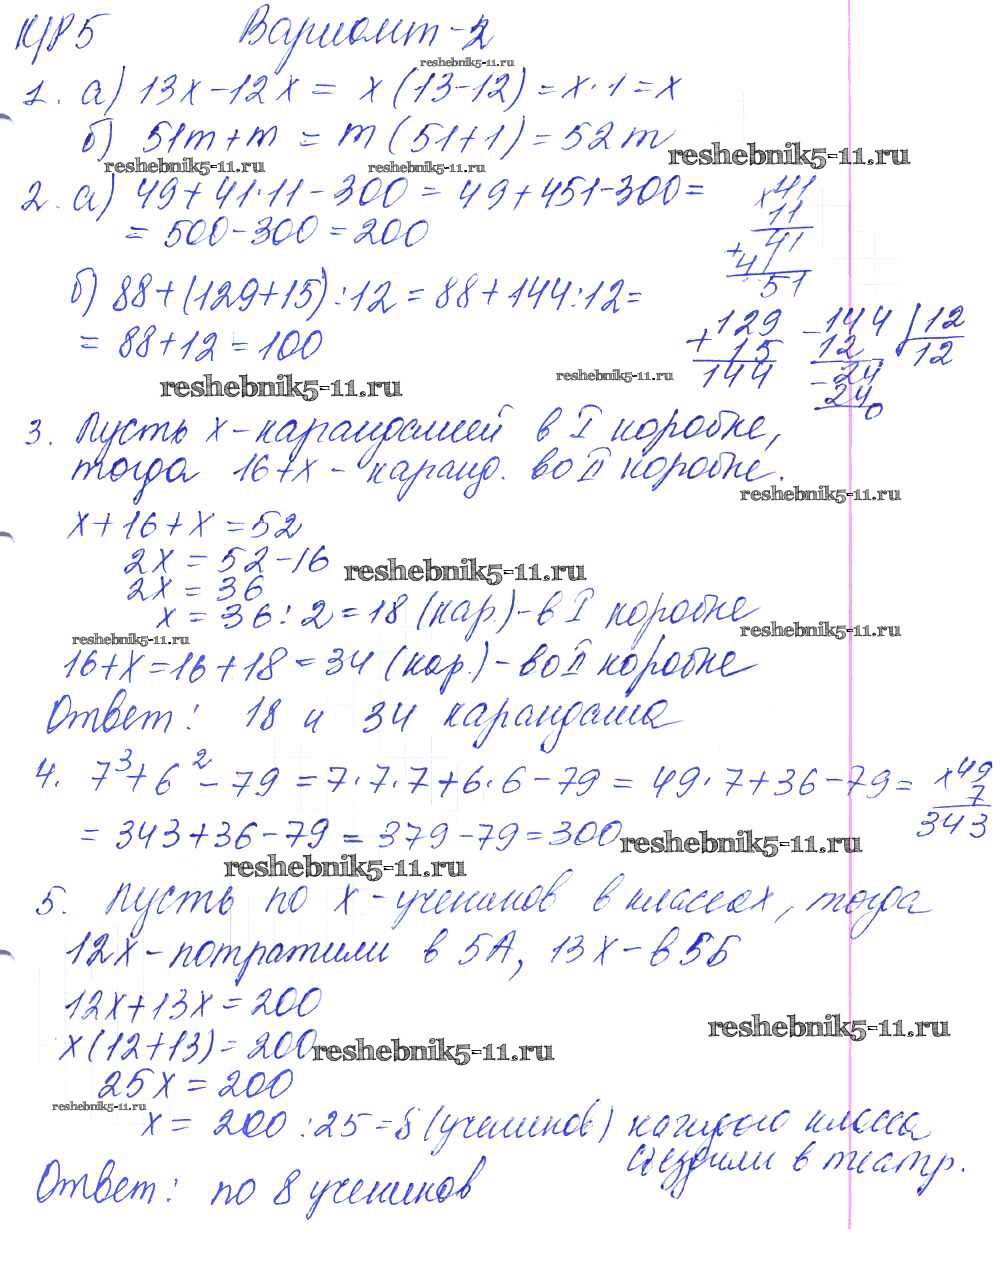 К/Р 5 Вариант-2
reshebnik5-11.ru
1. а) 13x-12x = x(13-12)=x·1=x
б) 51m+m = m(51+1)=52m
reshebnik5-11.ru reshebnik5-11.ru reshebnik5-11.ru
2. а) 49+41·11-300 = 49+451-300=
= 500-300=200
×41
11
+ 41
41
51
б) 88+(129+15):12=88+144:12=
= 88+12=100
+129
15
144
-144 | 12
12 12
-24
24
0
reshebnik5-11.ru reshebnik5-11.ru
3. Пусть x-карандашей в I коробке,
тогда 16+x - каранд. во II коробке.
reshebnik5-11.ru
x+16+x=52
2x = 52-16
reshebnik5-11.ru
2x = 36
x = 36:2=18 (кар.)-в I коробке
reshebnik5-11.ru reshebnik5-11.ru
16+x=16+18=34 (кар.)-во II коробке
Ответ: 18 и 34 карандаша
4. 7³+6²-79=7·7·7+6·6-79=49·7+36-79=
= 343+36-79=379-79=300
×49
7
343
reshebnik5-11.ru
reshebnik5-11.ru
5. Пусть по x-учеников в классах, тогда
12x-потратили в 5А, 13x-в 5Б
12x+13x=200
reshebnik5-11.ru
x(12+13)=200
reshebnik5-11.ru
25x=200
reshebnik5-11.ru
x= 200:25=8 (учеников) каждого класса
ездили в театр.
Ответ: по 8 учеников